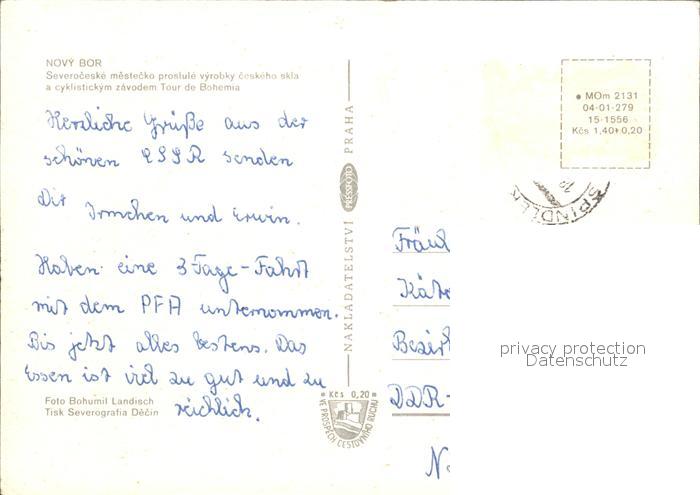 NOVÝ BOR
Severočeské městečko proslulé výrobky českého skla
a cyklistickým závodem Tour de Bohemia
Herzliche Grüße aus der
schönen ČSSR senden
Dir Irmchen und Erwin.
Haben eine 3-Tage-Fahrt
mit dem PFH unternommen.
Bis jetzt alles bestens. Das
Essen ist viel zu gut und zu
reichlich.
Foto Bohumil Landisch
Tisk Severografia Děčín
NAKLADATELSTVÍ PRESSFOTO PRAHA
• Kčs 0,20 •
VE PROSPĚCH CESTOVNÍHO RUCHU
• MOm 2131
04-01-279
15-1556
Kčs 1,40+0,20
SPINDLER
Fräul
Käte
Bezirk
DDR-
privacy protection
Datenschutz